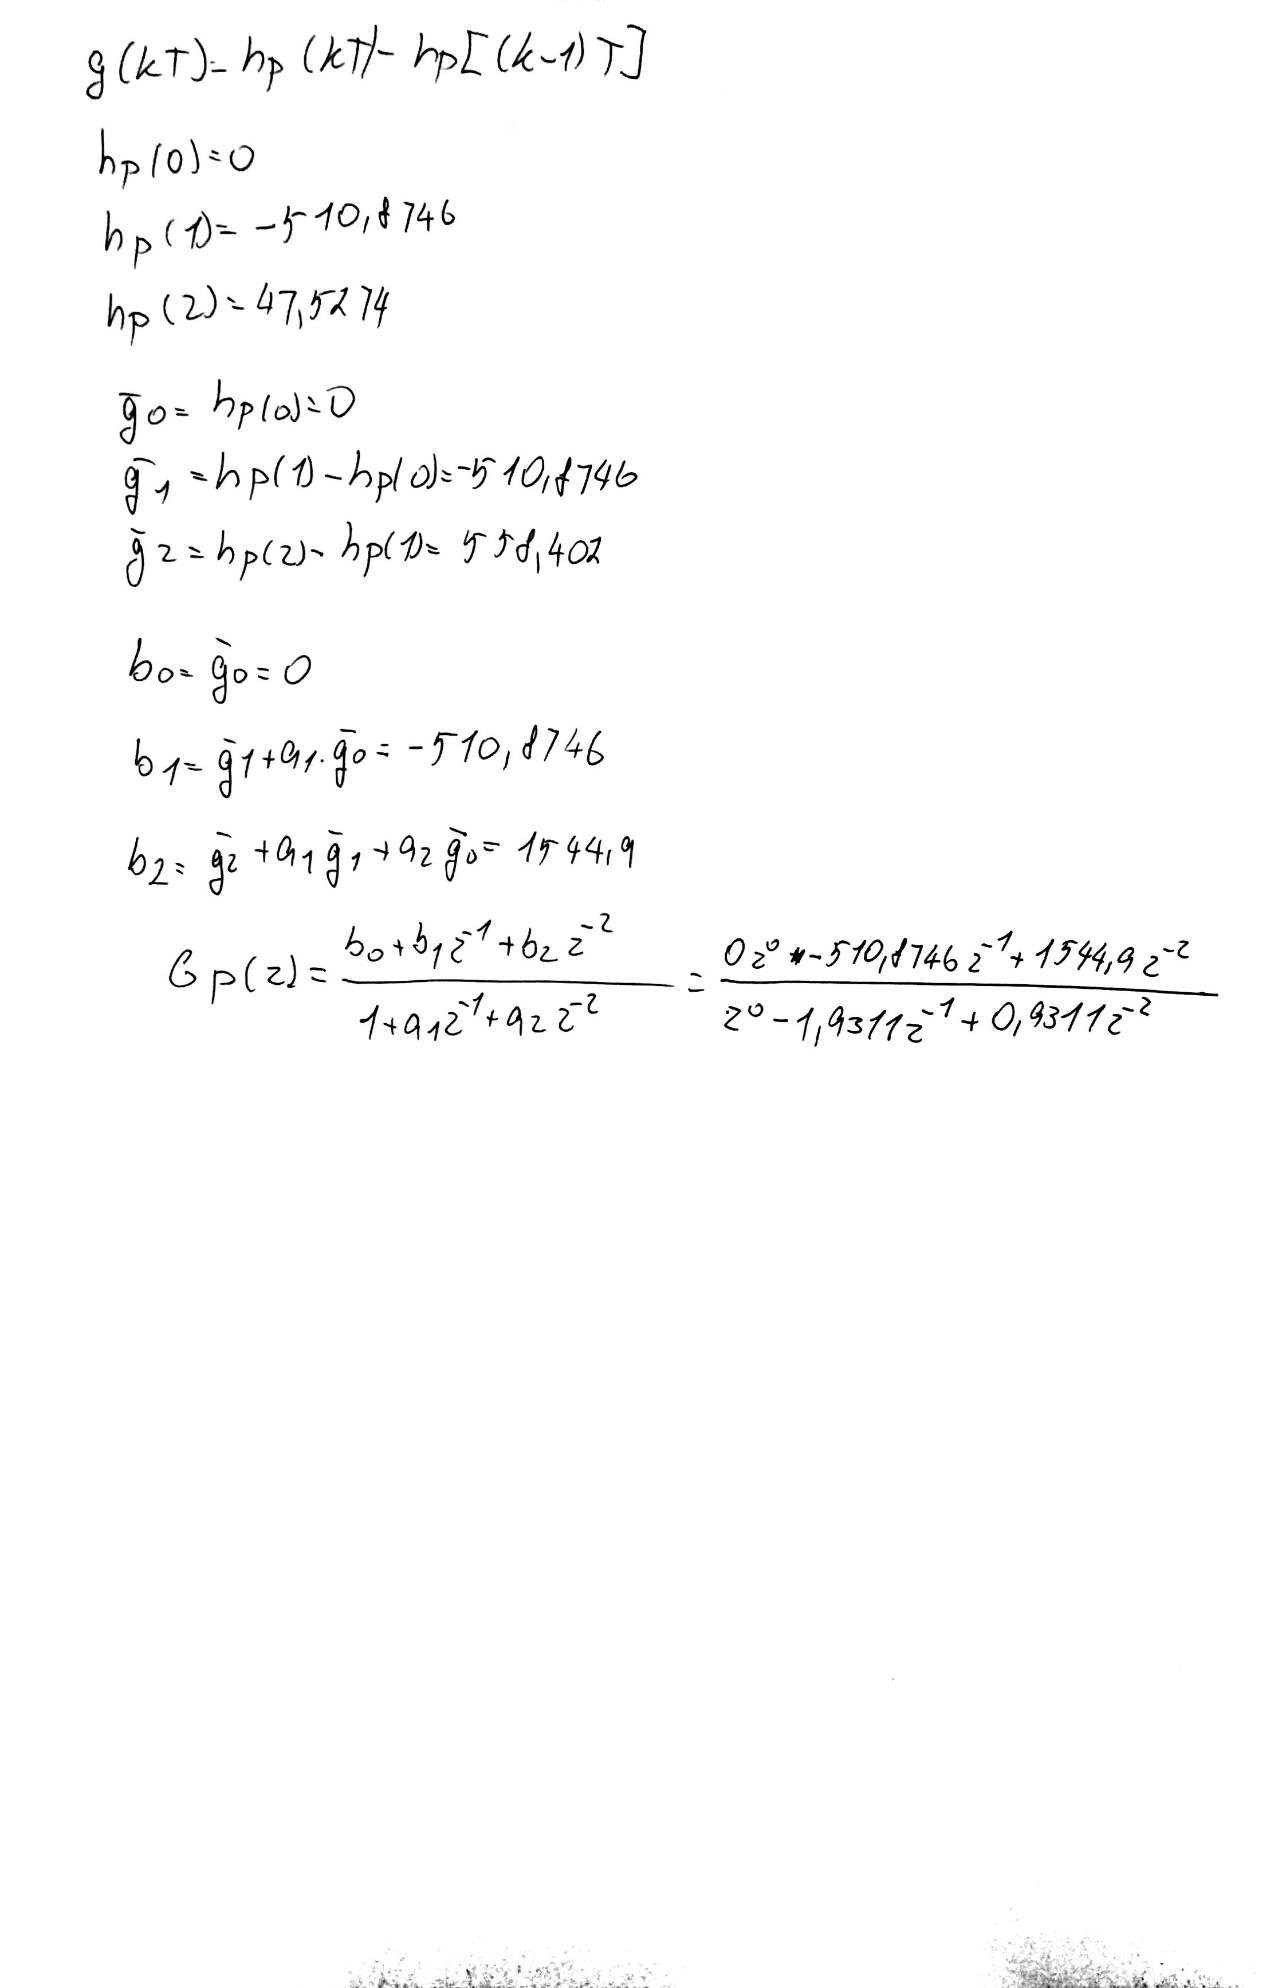 g(kT)= hp(kT)- hp[(k-1)T]
hp(0)=0
hp(1)= -510,8746
hp(2)= 47,5274
ḡ0= hp(0)=0
ḡ1 =hp(1)-hp(0)=-510,8746
ḡ2=hp(2)- hp(1)= 558,402
b0= ḡ0=0
b1= ḡ1+a1·ḡ0= -510,8746
b2= ḡ2+a1ḡ1+a2ḡ0= 1544,9
Gp(z)= (b0+b1z^-1+b2z^-2)/(1+a1z^-1+a2z^-2) = (0z^0-510,8746z^-1+1544,9z^-2)/(z^0-1,9311z^-1+0,9311z^-2)